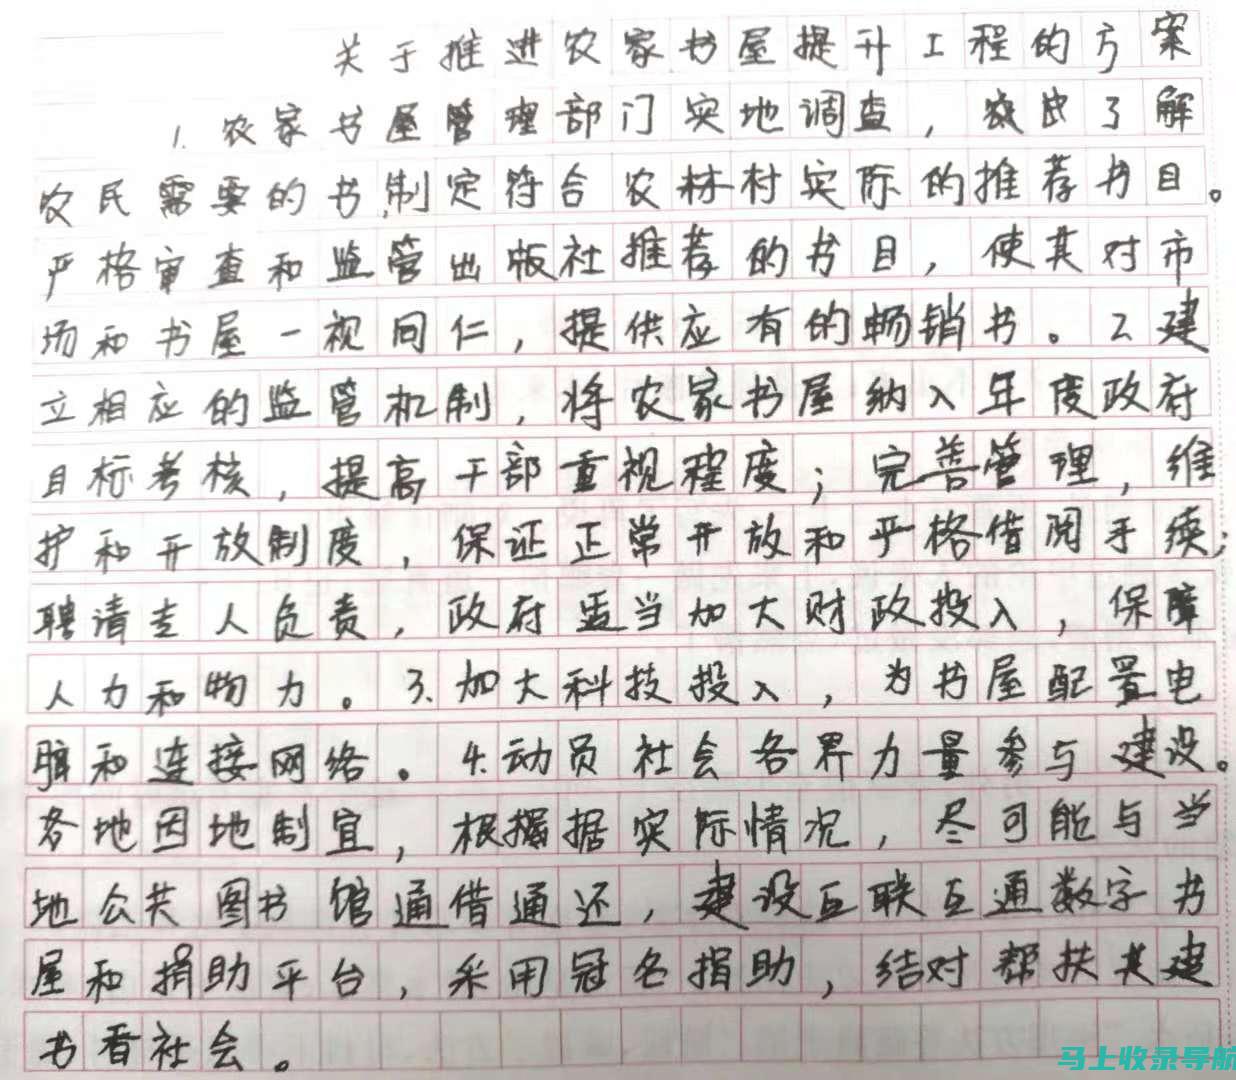 关于推进农家书屋提升工程的方案
1.农家书屋管理部门实地调查，农民了解
农民需要的书,制定符合农林村实际的推荐书目。
严格审查和监管出版社推荐的书目，使其对市
场和书屋一视同仁，提供应有的畅销书。2.建
立相应的监管机制，将农家书屋纳入年度政府
目标考核，提高干部重视程度；完善管理，维
护和开放制度，保证正常开放和严格借阅手续；
聘请专人负责，政府适当加大财政投入，保障
人力和物力。3.加大科技投入，为书屋配置电
脑和连接网络。4.动员社会各界力量参与建设。
各地因地制宜，根据据实际情况，尽可能与当
地公共图书馆通借通还，建设互联互通数字书
屋和捐助平台，采用冠名捐助，结对帮扶共建
书香社会。
马上收录导航